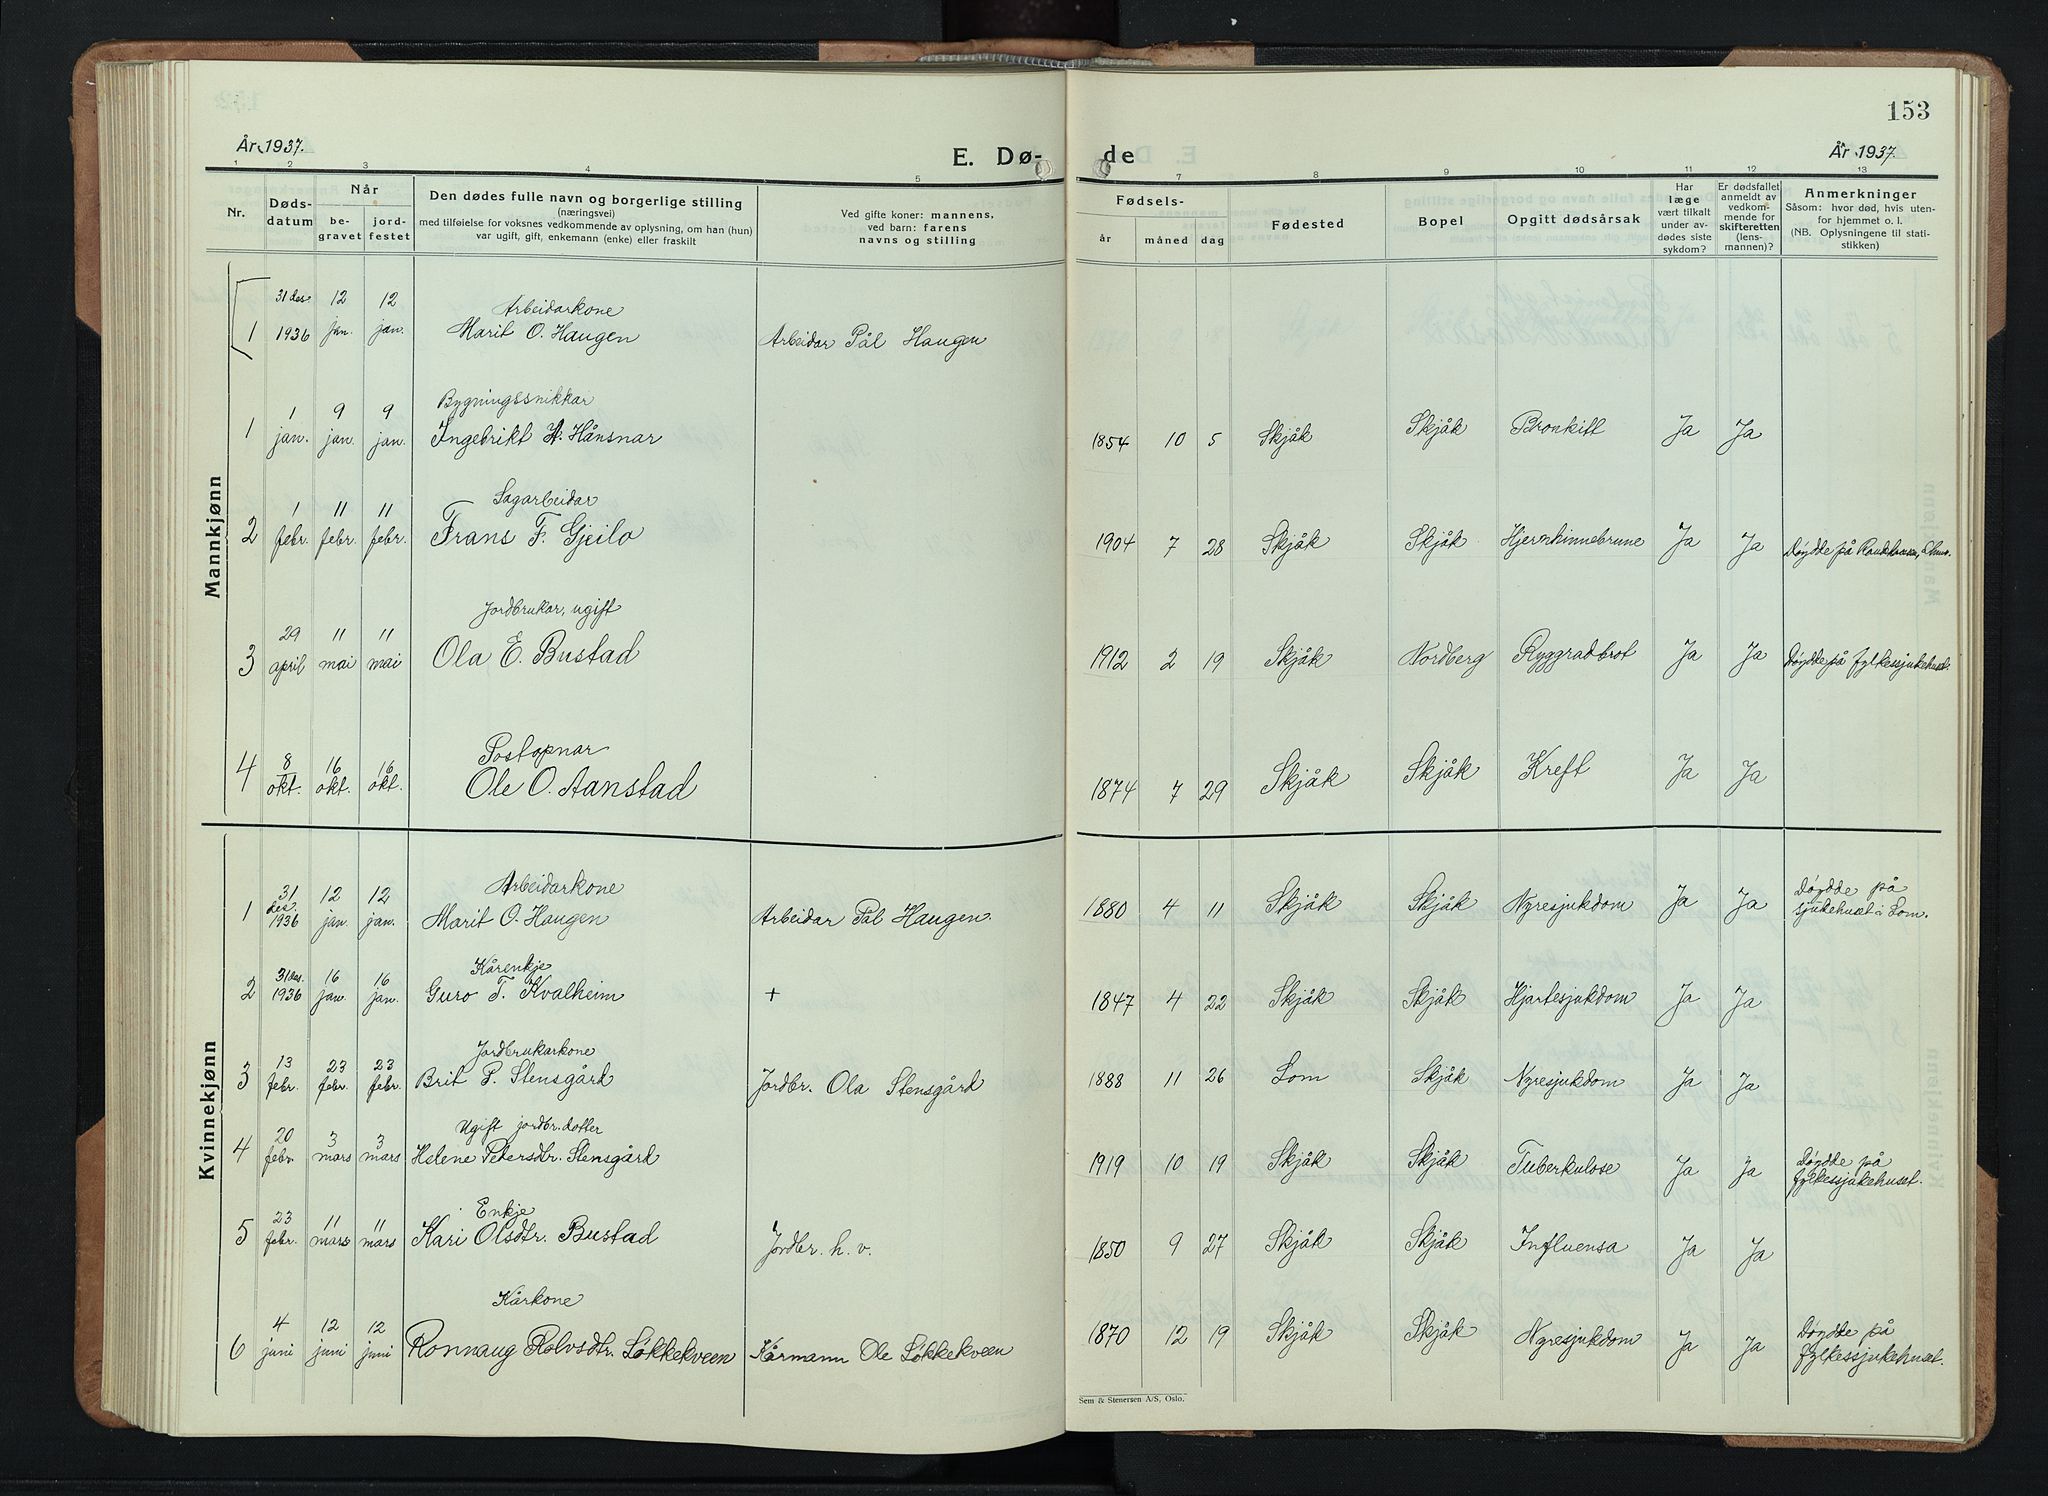 153
År 1937.
E. Dø-
de
År 1937.
1 2 3 4 5 7 8 9 10 11 12 13
Nr.
Døds-
datum
Når
be-
gravet
jord-
festet
Den dødes fulle navn og borgerlige stilling
(næringsvei)
med tilføielse for voksnes vedkommende av oplysning, om han (hun)
var ugift, gift, enkemann (enke) eller fraskilt
Ved gifte koner: mannens,
ved barn: farens
navns og stilling
Fødsels-
år måned dag
Fødested
Bopel
Opgitt dødsårsak
Har
læge
vært tilkalt
under av-
dødes siste
sykdom?
Er dødsfallet
anmeldt av
vedkom-
mende for
skifteretten
(lens-
mannen)?
Anmerkninger
Såsom: hvor død, hvis uten-
for hjemmet o. l.
(NB. Oplysningene til stati-
stikken)
Mannkjønn
31 des. 12 12 Arbeidarkone
1 1936 jan. jan. Marit O. Haugen Arbeidar Pål Haugen
1 9 9 Bygningssnikkar
1 jan. jan. jan. Ingebrikt H. Hånsnar 1854 10 5 Skjåk Skjåk Bronkitt Ja Ja
1 11 11 Sagarbeidar
2 febr. febr. febr. Frans F. Gjeilo 1904 7 28 Skjåk Skjåk Hjernhinnebrune Ja Ja Døydde på
29 11 11 Jordbrukar, ugift
3 april mai mai Ola E. Bustad 1912 2 19 Skjåk Nordberg Ryggradbrot Ja Ja Døydde på fylkessjukehuset.
8 16 16 Postopnar
4 okt. okt. okt. Ole O. Aanstad 1874 7 29 Skjåk Skjåk Kreft Ja Ja
Kvinnekjønn
31 12 12 Arbeidarkone Døydde på
1 des. 1936 jan. jan. Marit O. Haugen Arbeidar Pål Haugen. 1880 4 11 Skjåk Skjåk Nyresjukdom Ja Ja sjukehuset i Lom.
31 des. 16 16 Kårenkje
2 1936 jan. jan. Guro T. Kvalheim + 1847 4 22 Skjåk Skjåk Hjartesjukdom Ja Ja
13 23 23 Jordbrukarkone
3 febr. febr. febr. Brit P. Stensgård Jordbr. Ola Stensgård 1888 11 26 Lom Skjåk Nyresjukdom Ja Ja
20 3 3 Ugift jordbr. dotter Døydde på
4 febr. mars mars Helene Petersdtr. Stensgård 1919 10 19 Skjåk Skjåk Tuberkulose Ja Ja fylkessjukehuset.
23 11 11 Enkje
5 febr. mars mars Kari Olsdtr. Bustad Jordbr. h. v. 1850 9 27 Skjåk Skjåk Influensa Ja Ja
4 12 12 Kårkone Døydde på
6 juni juni juni Ronnaug Rolvsdtr. Løkkekveen Kårmann Ole Løkkekveen 1870 12 19 Skjåk Skjåk Nyresjukdom Ja Ja fylkessjukehuset.
Sem & Stenersen A/S, Oslo.